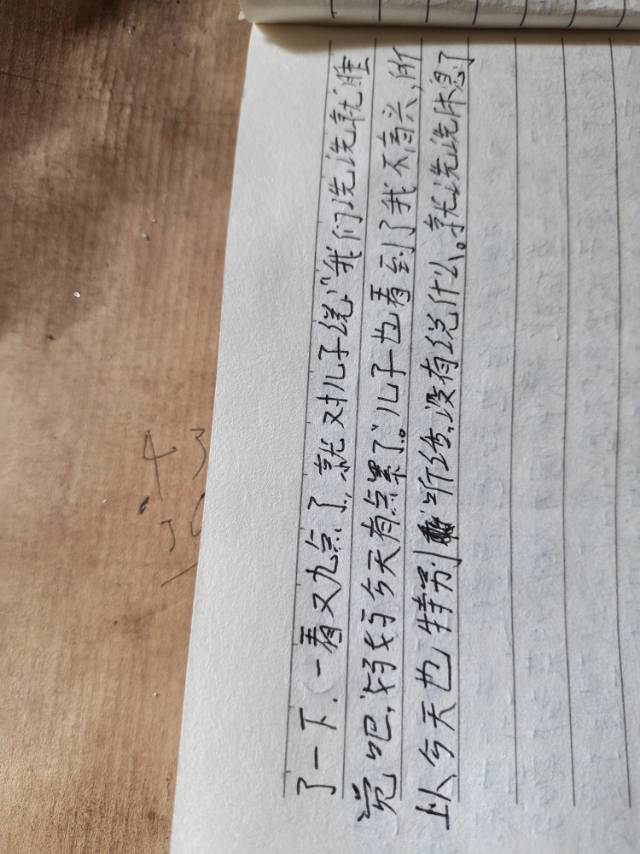 了一下.一看又九点了,就对儿子说:"我们洗洗就睡
觉吧,妈妈今天有点累了。"儿子也看到了我不高兴,所
以今天也特别听话,没有说什么。就洗洗休息了
43